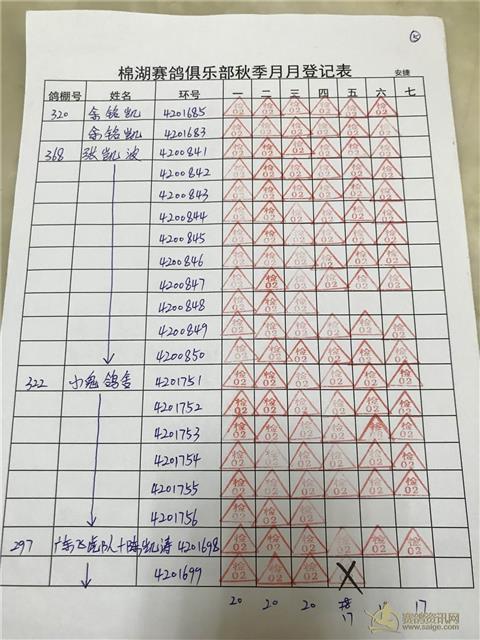 ⑤
棉湖赛鸽俱乐部秋季月月登记表
安捷
鸽棚号 姓名 环号 一 二 三 四 五 六 七
320 余铭凯 4201685 检02 检02 检02 检02 检02 检02
余铭凯 4201683 检02 检02 检02 检02 检02 检02
368 张凯波 4200841 检02 检02 检02 检02 检02 检02
4200842 检02 检02 检02 检02 检02 检02
4200843 检02 检02 检02 检02 检02 检02
4200844 检02 检02 检02 检02 检02 检02
4200845 检02 检02 检02 检02 检02 检02
4200846 检02 检02 检02 检02 检02 检02
4200847 检02 检02 检02 检02 检02 检02
4200848 检02 检02 检02
4200849 检02 检02 检02 检02 检02 检02 检02
4200850 检02 检02 检02 检02 检02 检02 检02
322 小鬼鸽舍 4201751 检02 检02 检02 检02 检02 检02 检02
4201752 检02 检02 检02 检02 检02 检02 检02
4201753 检02 检02 检02 检02 检02 检02 检02
4201754 检02 检02 检02 检02 检02 检02 检02
4201755 检02 检02 检02 检02 检02 检02 检02
4201756 检02 检02 检02
297 广东飞虎队+陈凯涛 4201698 检02 检02 检02 检02 检02 检02 检02
4201699 检02 检02 检02 检02 X
20 20 20 17 17
赛鸽资讯网
www.saige.com